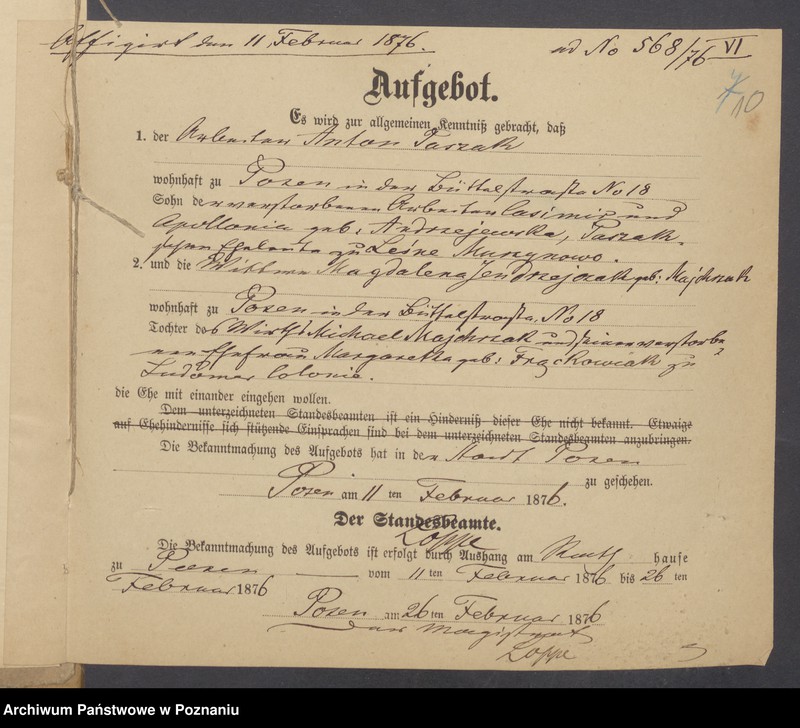 Affigirt den 11 Februar 1876.
ad No 568/76 VI
10
Aufgebot.
Es wird zur allgemeinen Kenntniß gebracht, daß
1. der Arbeiter Anton Taszak
wohnhaft zu Posen in der Büttelstraße No 18
Sohn der verstorbenen Arbeiter Casimir und
Apollonia geb: Andrzejewska, Taszak-
schen Eheleute zu Murzynowo.
2. und die Wittwe Magdalena Jendrzejczak geb: Majchrzak
wohnhaft zu Posen in der Büttelstraße, No 18
Tochter des Wirths Michael Majchrzak und seiner verstorbe-
nen Ehefrau Margaretha geb: Frąckowiak zu
Ludomer Colonie.
die Ehe mit einander eingehen wollen.
Dem unterzeichneten Standesbeamten ist ein Hinderniß dieser Ehe nicht bekannt. Etwaige
auf Ehehindernisse sich stützende Einsprachen sind bei dem unterzeichneten Standesbeamten anzubringen.
Die Bekanntmachung des Aufgebots hat in der Stadt Posen
zu geschehen.
Posen am 11 ten Februar 1876.
Der Standesbeamte.
Zoppe
Die Bekanntmachung des Aufgebots ist erfolgt durch Aushang am Rath hause
zu Posen vom 11 ten Februar 1876 bis 26 ten
Februar 1876
Posen am 26 ten Februar 1876
Der Magistrat
Zoppe
Archiwum Państwowe w Poznaniu